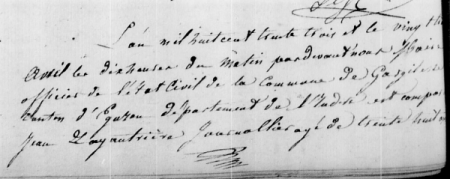 L'an mil huit cent trente trois et le vingt
avril les dix heures du matin pardevant nous Maire
officier de l'état Civil de la Commune de Gargil
Canton d'Eguzon département de l'Indre est compa
Jean journallier agé de trente huit